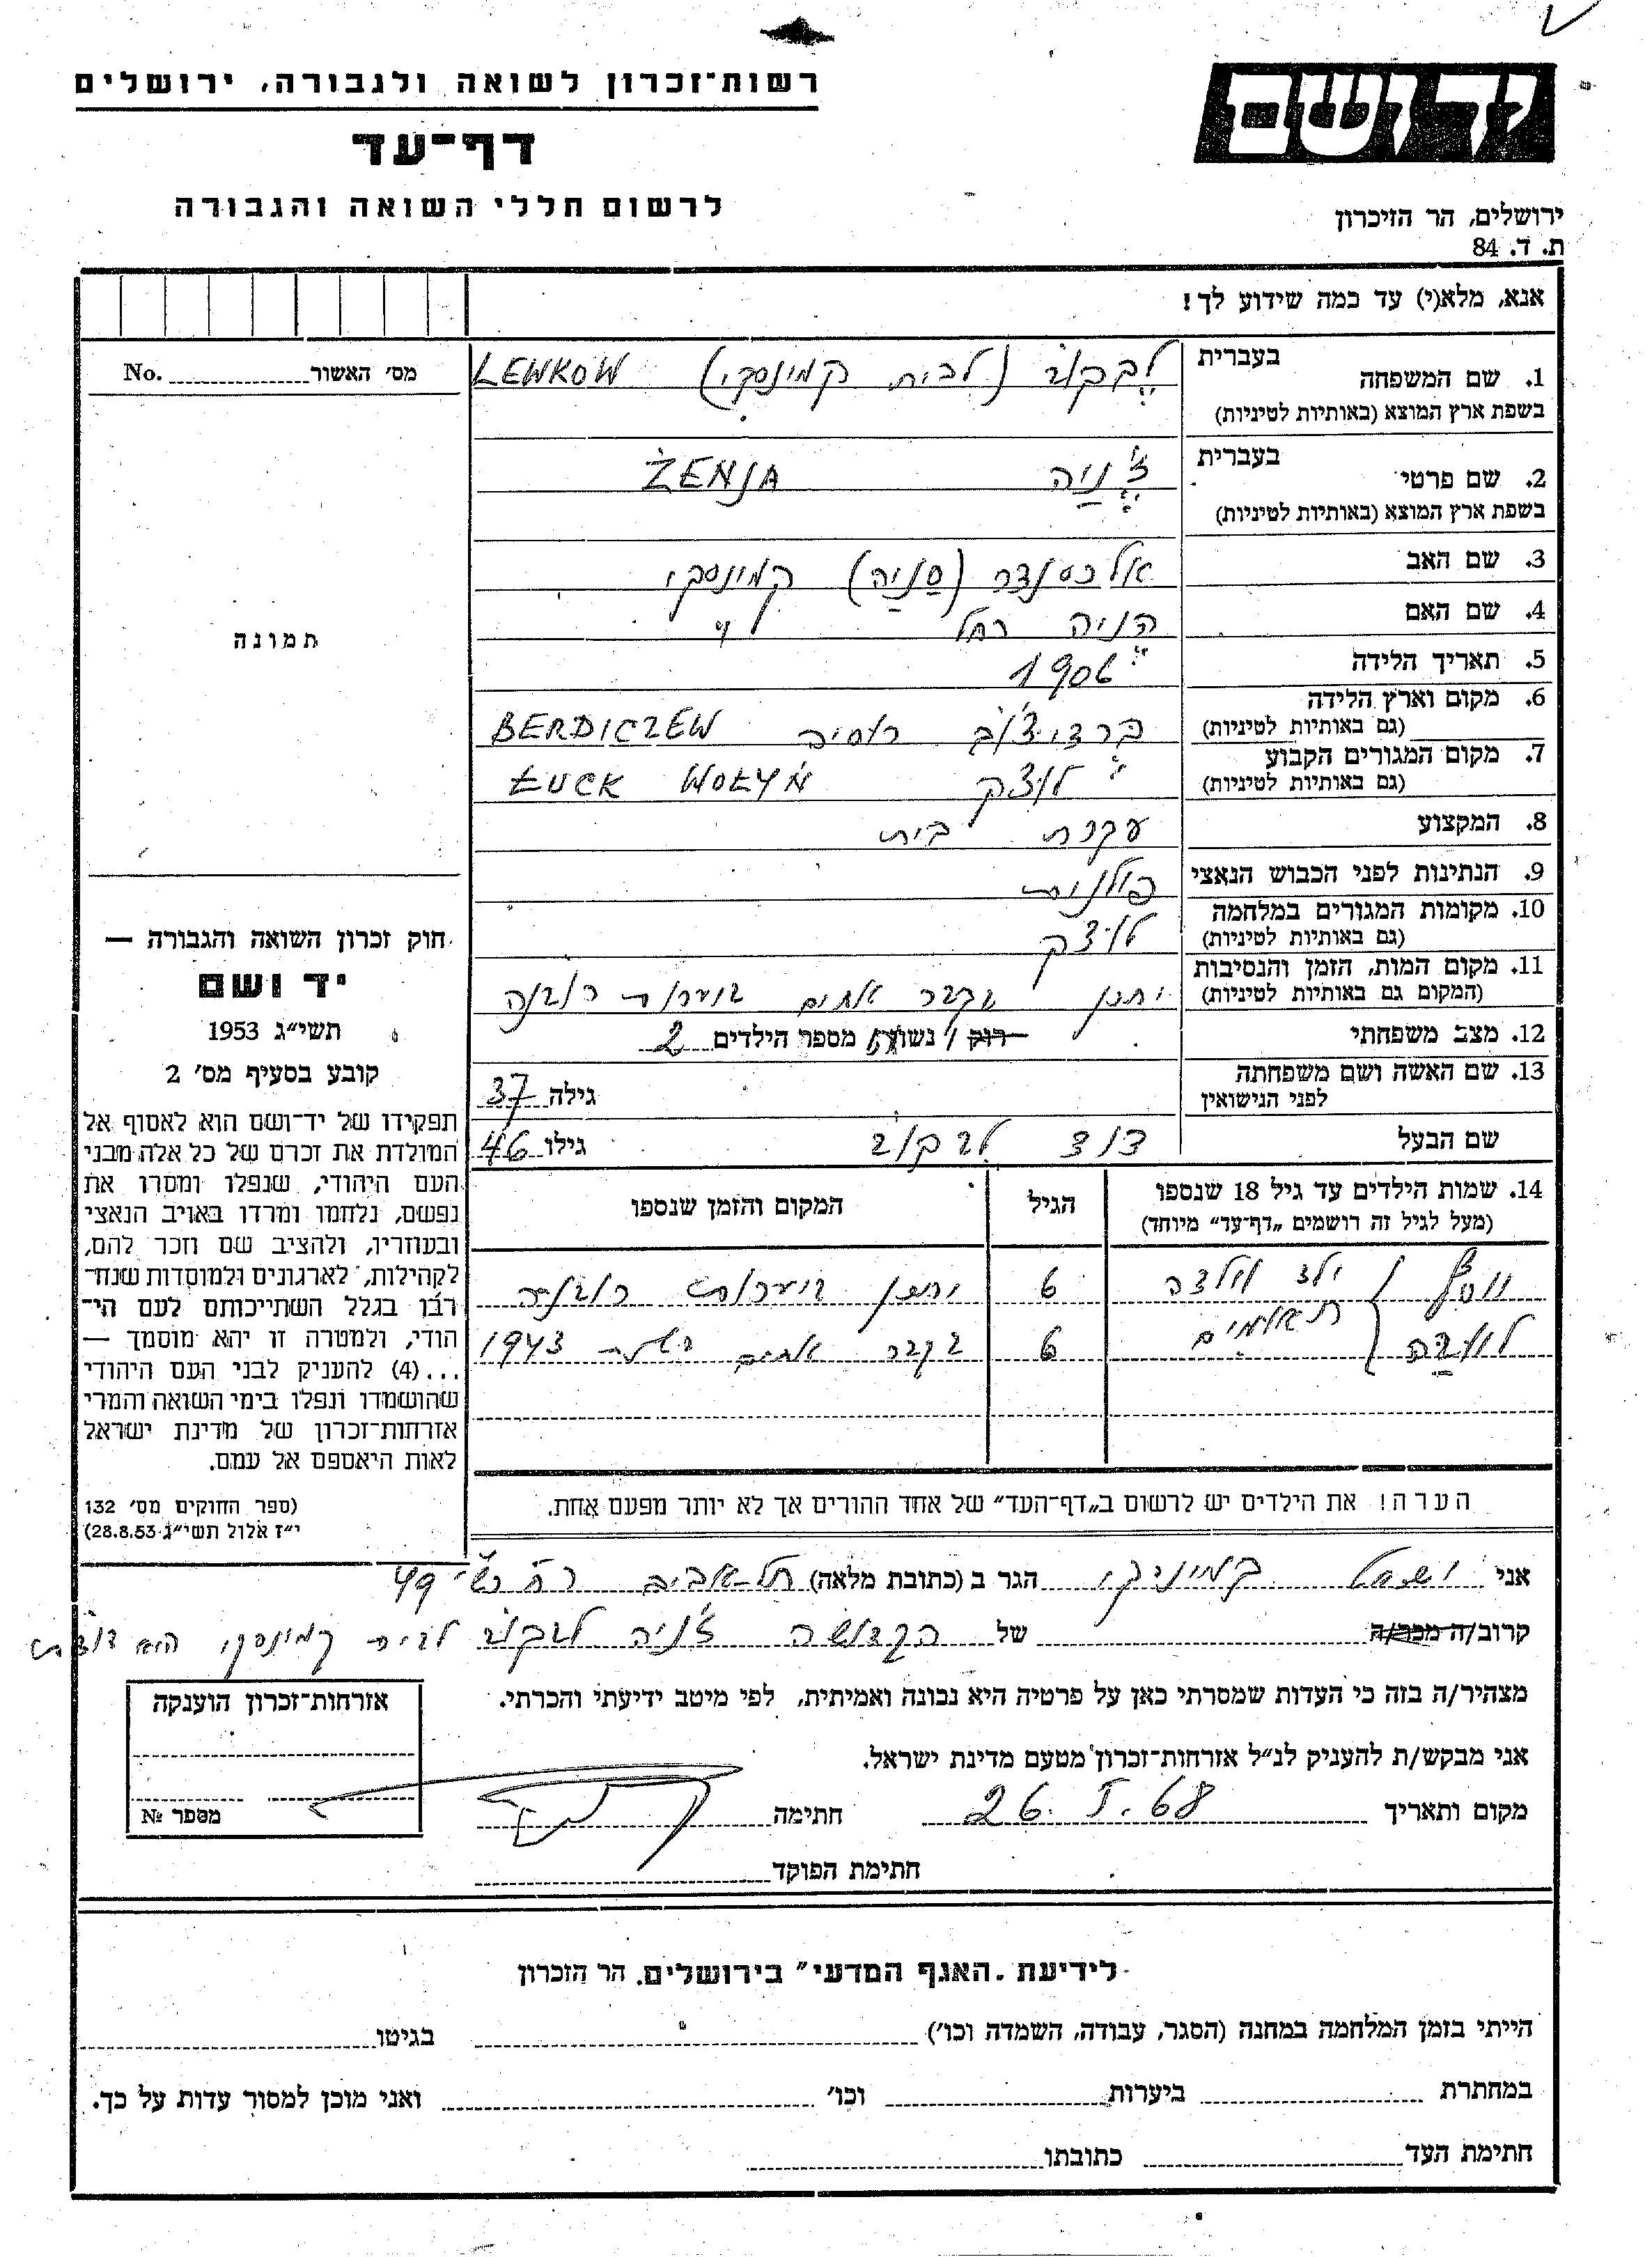 רשות־זכרון לשואה ולגבורה, ירושלים
דף־עד
לרשום חללי השואה והגבורה
יד ושם
ירושלים, הר הזיכרון
ת. ד. 84
אנא, מלא(י) עד כמה שידוע לך!
מס׳ האשור No.
תמונה
1. שם המשפחה בעברית לבקוב (לבית קמינסקי) LEWKOW
בשפת ארץ המוצא (באותיות לטיניות)
2. שם פרטי בעברית ז׳ניה ŻENJA
בשפת ארץ המוצא (באותיות לטיניות)
3. שם האב אלכסנדר (סניה) קמינסקי
4. שם האם רחל "
5. תאריך הלידה 1906
6. מקום וארץ הלידה ברדיצ׳וב רוסיה BERDICZEW
(גם באותיות לטיניות)
7. מקום המגורים הקבוע לוצק ŁUCK WOŁYŃ
(גם באותיות לטיניות)
8. המקצוע עקרת בית
9. הנתינות לפני הכבוש הנאצי פולנית
10. מקומות המגורים במלחמה לוצק
(גם באותיות לטיניות)
11. מקום המות, הזמן והנסיבות בקבר אחים ביערות
(המקום גם באותיות לטיניות)
12. מצב משפחתי רוק / נשוי/אה מספר הילדים 2
13. שם האשה ושם משפחתה לפני הנישואין גילה 37
שם הבעל דוד לבקוב גילו 46
14. שמות הילדים עד גיל 18 שנספו
(מעל לגיל זה רושמים „דף־עד" מיוחד)
הגיל
המקום והזמן שנספו
ילד וילדה 6 ביערות
תאומים 6 בקבר אחים 1943
הערה! את הילדים יש לרשום ב„דף־העד" של אחד ההורים אך לא יותר מפעם אחת.
חוק זכרון השואה והגבורה —
יד ושם
תשי״ג 1953
קובע בסעיף מס׳ 2
תפקידו של יד־ושם הוא לאסוף אל
המולדת את זכרם של כל אלה מבני
העם היהודי, שנפלו ומסרו את
נפשם, נלחמו ומרדו באויב הנאצי
ובעוזריו, ולהציב שם וזכר להם,
לקהילות, לארגונים ולמוסדות שנח־
רבו בגלל השתייכותם לעם הי־
הודי, ולמטרה זו יהא מוסמך —
...(4) להעניק לבני העם היהודי
שהושמדו ונפלו בימי השואה והמרי
אזרחות־זכרון של מדינת ישראל
לאות היאספם אל עמם.
(ספר החוקים מס׳ 132
י״ז אלול תשי״ג 28.8.53)
אני קמינסקי הגר ב (כתובת מלאה) תל-אביב 49
קרוב/ה מכר/ה של הקדושה ז׳ניה לבקוב לבית קמינסקי היא דודתי
מצהיר/ה בזה כי העדות שמסרתי כאן על פרטיה היא נכונה ואמיתית, לפי מיטב ידיעתי והכרתי.
אני מבקש/ת להעניק לנ״ל אזרחות־זכרון מטעם מדינת ישראל.
מקום ותאריך 26. I. 68 חתימה
חתימת הפוקד
אזרחות־זכרון הוענקה
מספר №
לידיעת „האגף המדעי" בירושלים. הר הזכרון
הייתי בזמן המלחמה במחנה (הסגר, עבודה, השמדה וכו׳) בגיטו
במחתרת ביערות וכו׳ ואני מוכן למסור עדות על כך.
חתימת העד כתובתו